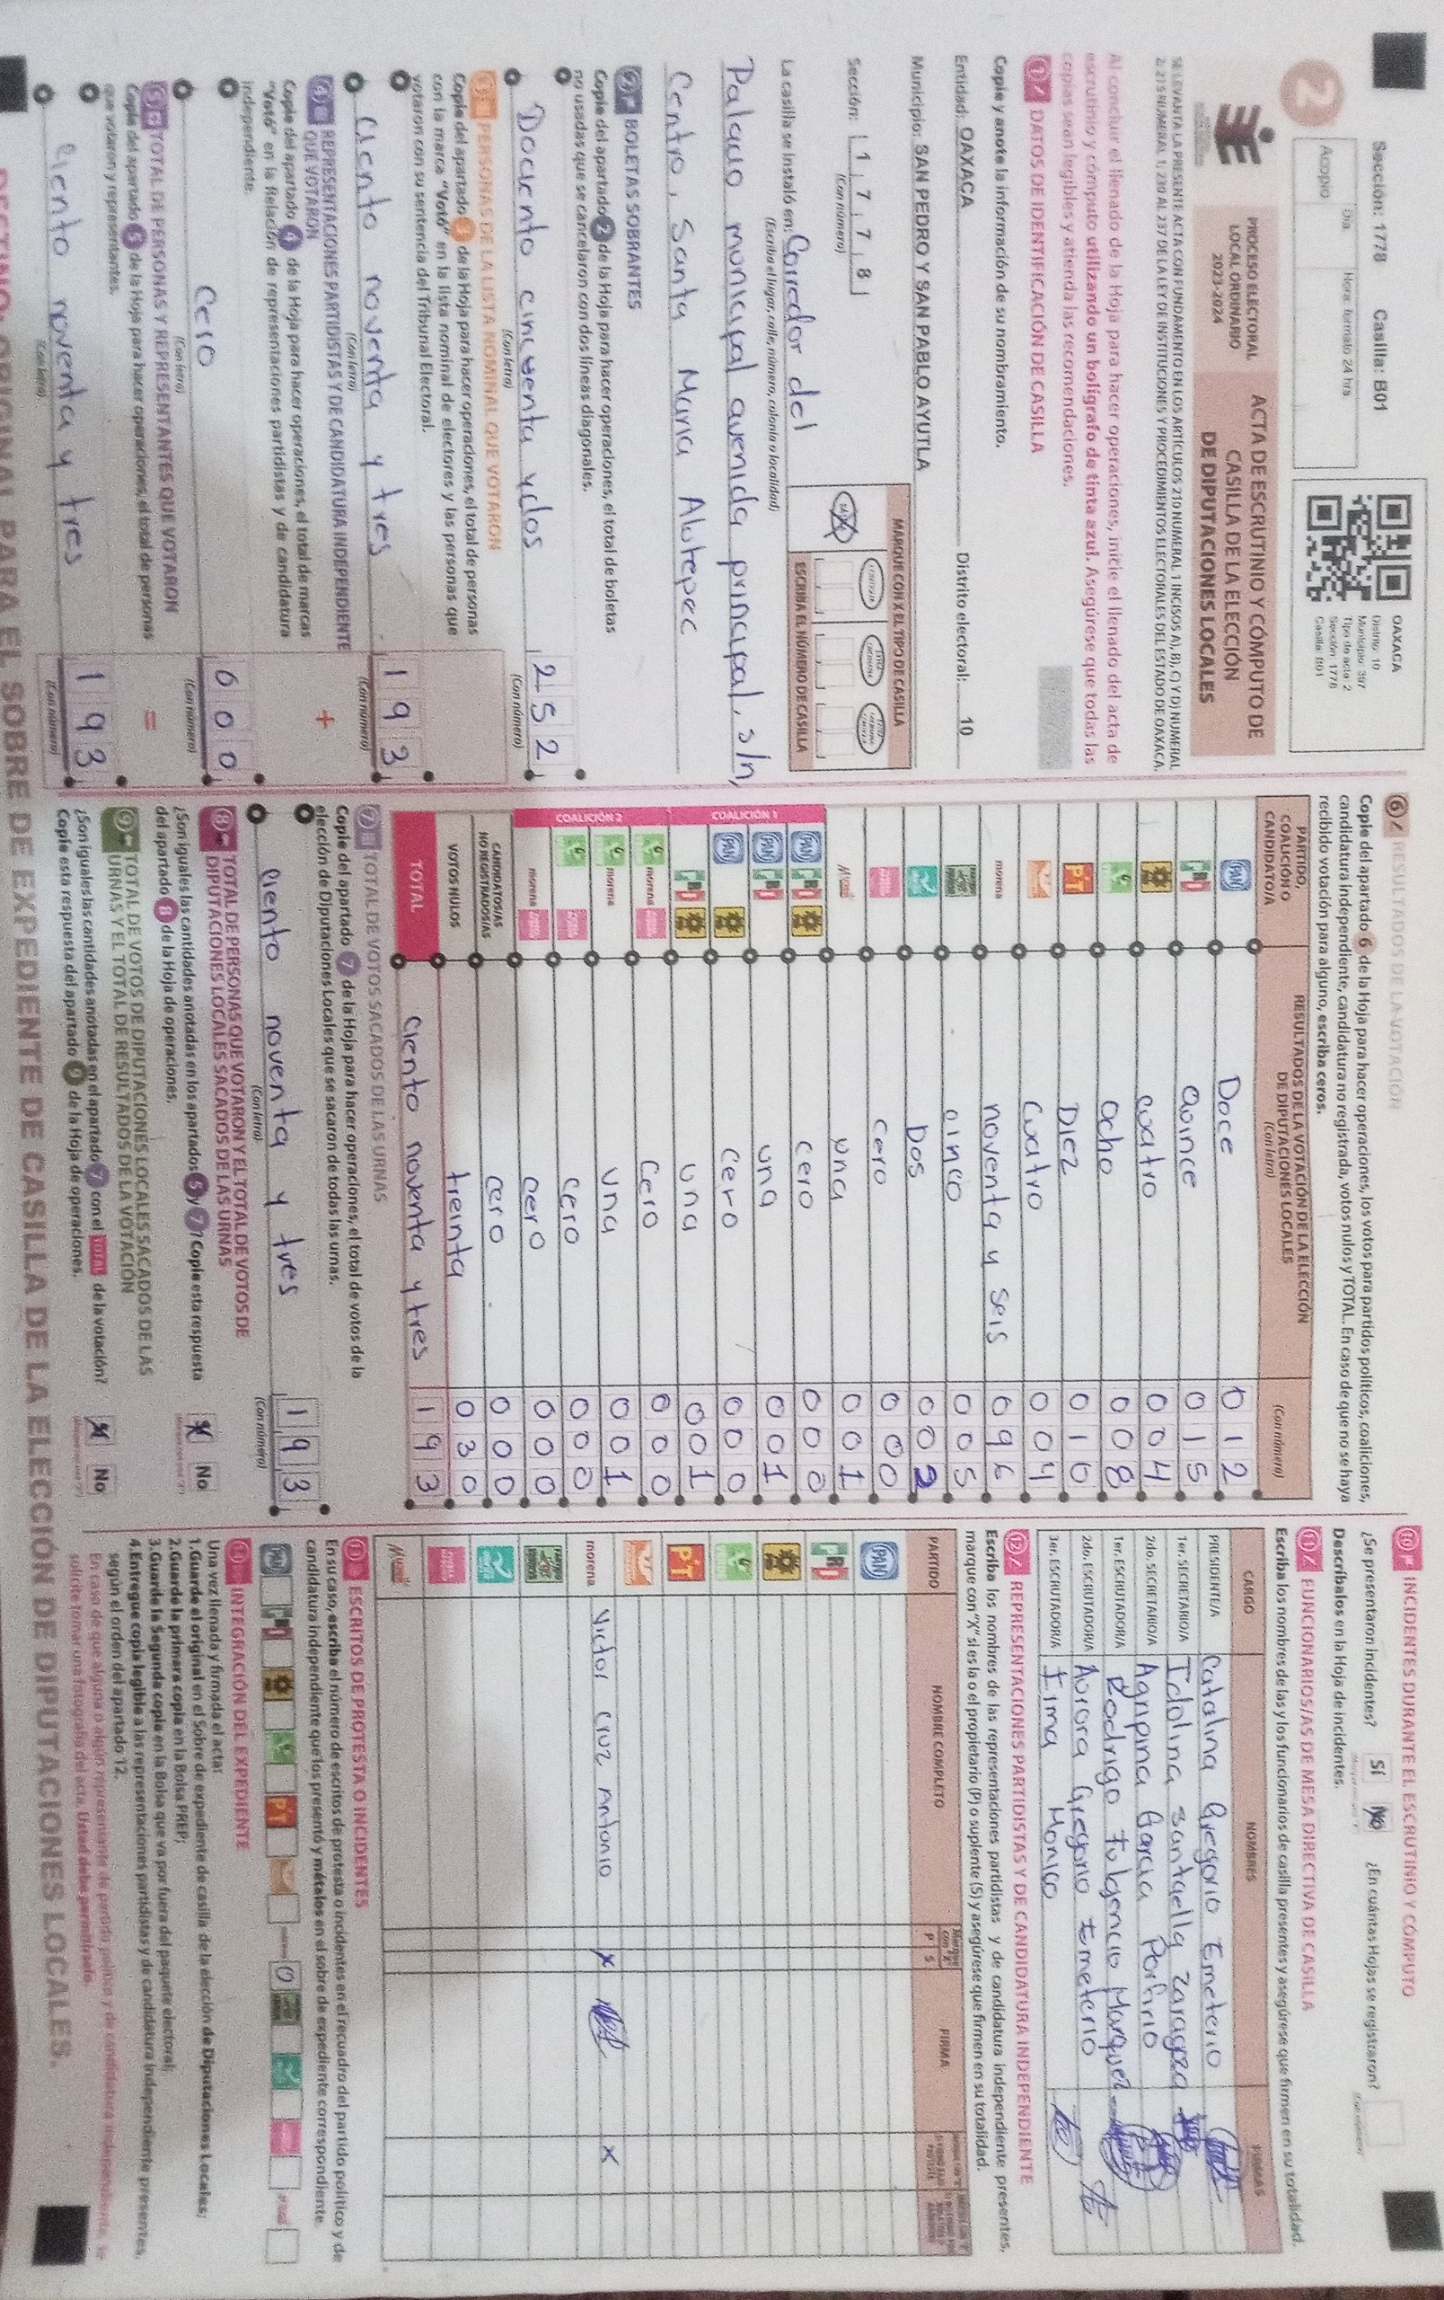 Sección: 1778 Casilla: B01
Día Hora: formato 24 hrs
2 Acopio
OAXACA
Distrito: 10
Municipio: 397
Tipo de acta: 2
Sección: 1778
Casilla: B01
PROCESO ELECTORAL
LOCAL ORDINARIO
2023-2024
ACTA DE ESCRUTINIO Y CÓMPUTO DE
CASILLA DE LA ELECCIÓN
DE DIPUTACIONES LOCALES
SE LEVANTA LA PRESENTE ACTA CON FUNDAMENTO EN LOS ARTÍCULOS 210 NUMERAL 1 INCISOS A), B), C) Y D) NUMERAL
2; 215 NUMERAL 1; 230 AL 237 DE LA LEY DE INSTITUCIONES Y PROCEDIMIENTOS ELECTORALES DEL ESTADO DE OAXACA.
Al concluir el llenado de la Hoja para hacer operaciones, inicie el llenado del acta de
escrutinio y cómputo utilizando un bolígrafo de tinta azul. Asegúrese que todas las
copias sean legibles y atienda las recomendaciones.
1 DATOS DE IDENTIFICACIÓN DE CASILLA
Copie y anote la información de su nombramiento.
Entidad: OAXACA Distrito electoral: 10
Municipio: SAN PEDRO Y SAN PABLO AYUTLA
Sección: 1 7 7 8
(Con número)
MARQUE CON X EL TIPO DE CASILLA
ESCRIBA EL NÚMERO DE CASILLA
La casilla se instaló en: Corredor del
(Escriba el lugar, calle, número, colonia o localidad)
Palacio municipal avenida principal, s/n,
Centro, Santa Maria Alotepec
2 BOLETAS SOBRANTES
Copie del apartado 2 de la Hoja para hacer operaciones, el total de boletas
no usadas que se cancelaron con dos líneas diagonales.
Docento cincuenta y dos 2 5 2
(Con letra) (Con número)
3 PERSONAS DE LA LISTA NOMINAL QUE VOTARON
Copie del apartado 3 de la Hoja para hacer operaciones, el total de personas
con la marca "Votó" en la lista nominal de electores y las personas que
votaron con su sentencia del Tribunal Electoral.
Ciento noventa y tres 1 9 3
(Con letra) (Con número)
4 REPRESENTACIONES PARTIDISTAS Y DE CANDIDATURA INDEPENDIENTE
QUE VOTARON
Copie del apartado 4 de la Hoja para hacer operaciones, el total de marcas
"Votó" en la Relación de representaciones partidistas y de candidatura
independiente.
+
Cero 0 0 0
(Con letra) (Con número)
5 TOTAL DE PERSONAS Y REPRESENTANTES QUE VOTARON
Copie del apartado 5 de la Hoja para hacer operaciones, el total de personas
que votaron y representantes.
=
Ciento noventa y tres 1 9 3
(Con letra) (Con número)
6 RESULTADOS DE LA VOTACIÓN
Copie del apartado 6 de la Hoja para hacer operaciones, los votos para partidos políticos, coaliciones,
candidatura independiente, candidatura no registrada, votos nulos y TOTAL. En caso de que no se haya
recibido votación para alguno, escriba ceros.
PARTIDO,
COALICIÓN O
CANDIDATO/A
RESULTADOS DE LA VOTACIÓN DE LA ELECCIÓN
DE DIPUTACIONES LOCALES
(Con letra) (Con número)
PAN Doce 0 1 2
PRI Quince 0 1 5
Cuatro 0 0 4
Ocho 0 0 8
PT Diez 0 1 0
Cuatro 0 0 4
morena noventa y seis 0 9 6
cinco 0 0 5
Dos 0 0 2
Cero 0 0 0
una 0 0 1
COALICIÓN 1
PAN PRI cero 0 0 0
PAN PRI una 0 0 1
PAN Cero 0 0 0
PRI una 0 0 1
COALICIÓN 2
morena Cero 0 0 0
morena una 0 0 1
Cero 0 0 0
morena cero 0 0 0
CANDIDATOS/AS
NO REGISTRADOS/AS cero 0 0 0
VOTOS NULOS treinta 0 3 0
TOTAL Ciento noventa y tres 1 9 3
7 TOTAL DE VOTOS SACADOS DE LAS URNAS
Copie del apartado 7 de la Hoja para hacer operaciones, el total de votos de la
elección de Diputaciones Locales que se sacaron de todas las urnas.
Ciento noventa y tres 1 9 3
(Con letra) (Con número)
8 TOTAL DE PERSONAS QUE VOTARON Y EL TOTAL DE VOTOS DE
DIPUTACIONES LOCALES SACADOS DE LAS URNAS
¿Son iguales las cantidades anotadas en los apartados 5 y 7? Copie esta respuesta
del apartado 8 de la Hoja de operaciones.
No
9 TOTAL DE VOTOS DE DIPUTACIONES LOCALES SACADOS DE LAS
URNAS Y EL TOTAL DE RESULTADOS DE LA VOTACIÓN
¿Son iguales las cantidades anotadas en el apartado 7 con el TOTAL de la votación?
Copie esta respuesta del apartado 9 de la Hoja de operaciones.
No
10 INCIDENTES DURANTE EL ESCRUTINIO Y CÓMPUTO
¿Se presentaron incidentes? Sí No ¿En cuántas Hojas se registraron?
Descríbalos en la Hoja de incidentes.
11 FUNCIONARIOS/AS DE MESA DIRECTIVA DE CASILLA
Escriba los nombres de las y los funcionarios de casilla presentes y asegúrese que firmen en su totalidad.
CARGO NOMBRES FIRMAS
PRESIDENTE/A Catalina Gregorio Emeterio
1er. SECRETARIO/A Idolina Santaella Zaragoza
2do. SECRETARIO/A Agripina Garcia Porfirio
1er. ESCRUTADOR/A Rodrigo Fulgencio Marquez
2do. ESCRUTADOR/A Aurora Gregorio Emeterio
3er. ESCRUTADOR/A Irma Monico
12 REPRESENTACIONES PARTIDISTAS Y DE CANDIDATURA INDEPENDIENTE
Escriba los nombres de las representaciones partidistas y de candidatura independiente presentes,
marque con "X" si es la o el propietario (P) o suplente (S) y asegúrese que firmen en su totalidad.
PARTIDO NOMBRE COMPLETO P S FIRMA
PAN
PRI
PT
morena Victor Cruz Antonio X X
13 ESCRITOS DE PROTESTA O INCIDENTES
En su caso, escriba el número de escritos de protesta o incidentes en el recuadro del partido político y de
candidatura independiente que los presentó y métalos en el sobre de expediente correspondiente.
PAN PRI PT 0
INTEGRACIÓN DEL EXPEDIENTE
Una vez llenada y firmada el acta:
1.Guarde el original en el Sobre de expediente de casilla de la elección de Diputaciones Locales;
2.Guarde la primera copia en la Bolsa PREP;
3.Guarde la Segunda copia en la Bolsa que va por fuera del paquete electoral;
4.Entregue copia legible a las representaciones partidistas y de candidatura independiente presentes,
según el orden del apartado 12.
DESTINO: ORIGINAL PARA EL SOBRE DE EXPEDIENTE DE CASILLA DE LA ELECCIÓN DE DIPUTACIONES LOCALES.